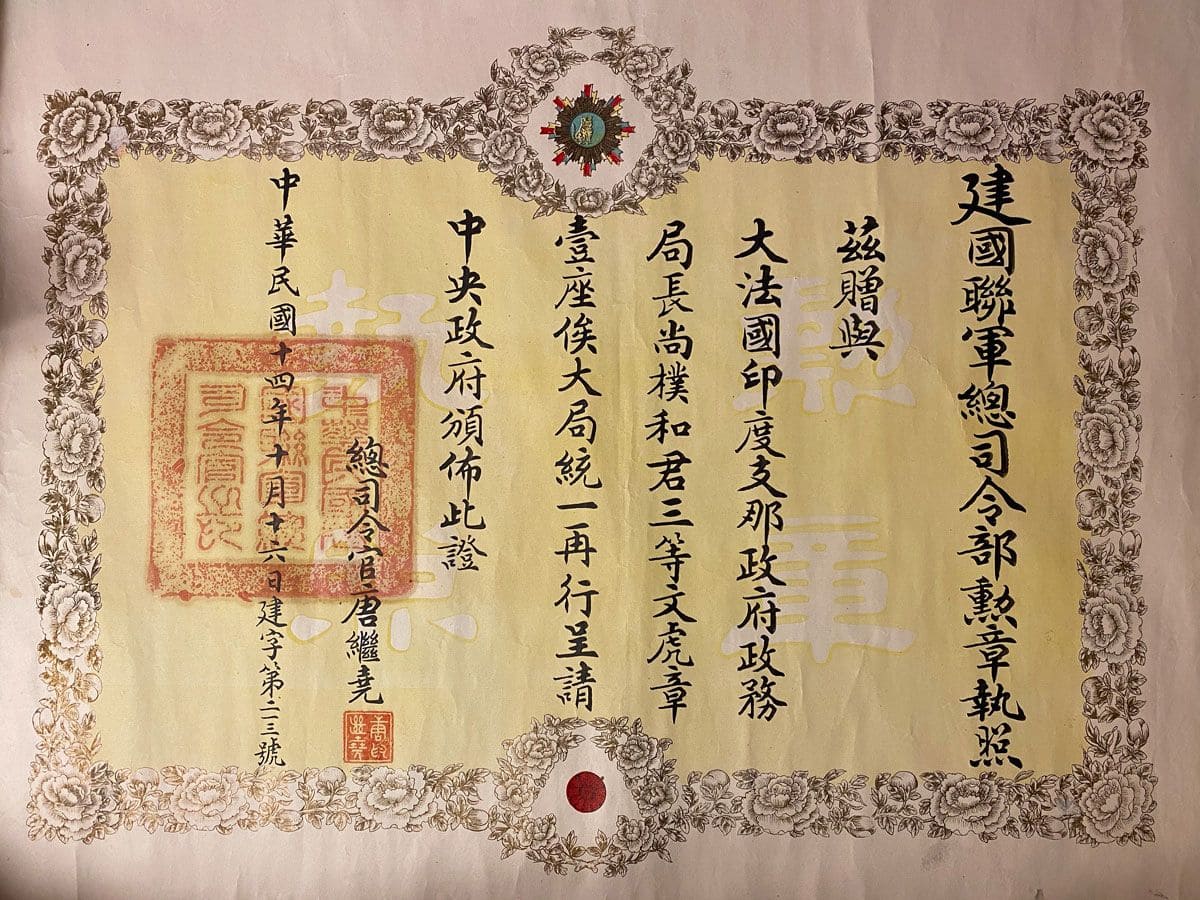 建國聯軍總司令部勲章執照
茲贈與
大法國印度支那政府政務
局長尚樸和君三等文虎章
壹座俟大局統一再行呈請
中央政府頒佈此證
總司令官唐繼堯
唐印
繼堯
中華民國十四年十月十六日建字第二三號
勲章
執照